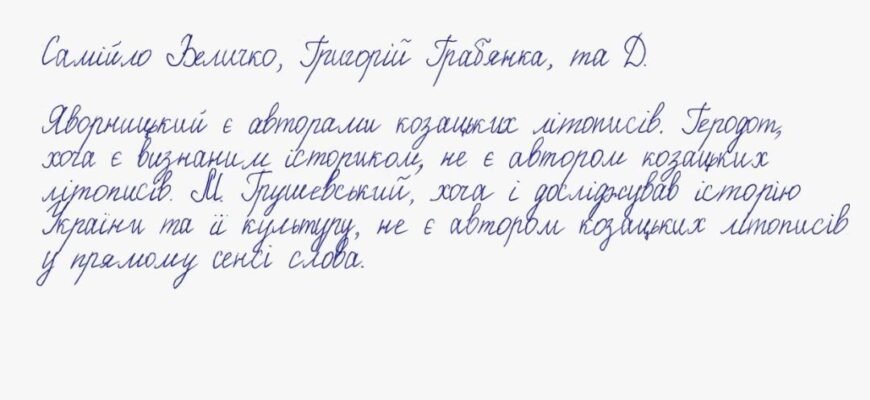 Самійло Величко, Григорій Граб'янка, та Д.
Яворницький є авторами козацьких літописів. Геродот,
хоча є визнаним істориком, не є автором козацьких
літописів. М. Грушевський, хоча і досліджував історію
України та її культуру, не є автором козацьких літописів
у прямому сенсі слова.